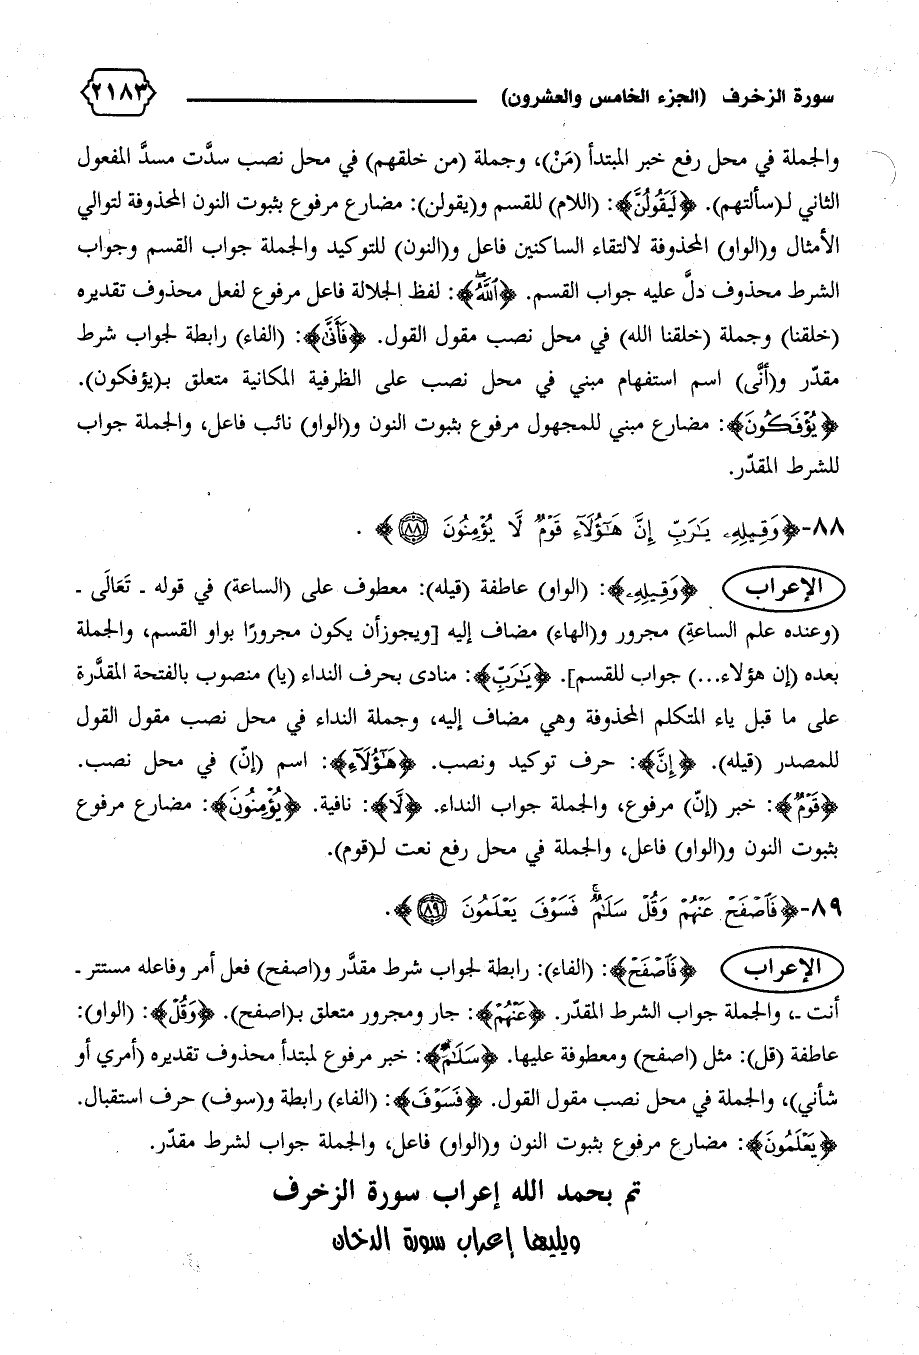 سورة الزخرف (الجزء الخامس والعشرون) ٢١٨٣
والجملة في محل رفع خبر المبتدأ (مَنْ)، وجملة (من خلقهم) في محل نصب سدَّت مسدَّ المفعول
الثاني لـ(سألتهم). ﴿لَيَقُولُنَّ﴾: (اللام) للقسم و(يقولن): مضارع مرفوع بثبوت النون المحذوفة لتوالي
الأمثال و(الواو) المحذوفة لالتقاء الساكنين فاعل و(النون) للتوكيد والجملة جواب القسم وجواب
الشرط محذوف دلَّ عليه جواب القسم. ﴿ٱللَّهُۖ﴾: لفظ الجلالة فاعل مرفوع لفعل محذوف تقديره
(خلقنا) وجملة (خلقنا الله) في محل نصب مقول القول. ﴿فَأَنَّىٰ﴾: (الفاء) رابطة لجواب شرط
مقدّر و(أنَّى) اسم استفهام مبني في محل نصب على الظرفية المكانية متعلق بـ(يؤفكون).
﴿يُؤۡفَكُونَ﴾: مضارع مبني للمجهول مرفوع بثبوت النون و(الواو) نائب فاعل، والجملة جواب
للشرط المقدّر.
٨٨-﴿وَقِيلِهِۦ يَٰرَبِّ إِنَّ هَٰٓؤُلَآءِ قَوۡمٞ لَّا يُؤۡمِنُونَ ٨٨﴾ .
الإعراب ﴿وَقِيلِهِۦ﴾: (الواو) عاطفة (قيله): معطوف على (الساعة) في قوله ـ تَعَالَى ـ
(وعنده علم الساعةِ) مجرور و(الهاء) مضاف إليه [ويجوزأن يكون مجرورًا بواو القسم، والجملة
بعده (إن هؤلاء...) جواب للقسم]. ﴿يَٰرَبِّ﴾: منادى بحرف النداء (يا) منصوب بالفتحة المقدَّرة
على ما قبل ياء المتكلم المحذوفة وهي مضاف إليه، وجملة النداء في محل نصب مقول القول
للمصدر (قيله). ﴿إِنَّ﴾: حرف توكيد ونصب. ﴿هَٰٓؤُلَآءِ﴾: اسم (إنّ) في محل نصب.
﴿قَوۡمٞ﴾: خبر (إنّ) مرفوع، والجملة جواب النداء. ﴿لَّا﴾: نافية. ﴿يُؤۡمِنُونَ﴾: مضارع مرفوع
بثبوت النون و(الواو) فاعل، والجملة في محل رفع نعت لـ(قوم).
٨٩-﴿فَٱصۡفَحۡ عَنۡهُمۡ وَقُلۡ سَلَٰمٞۚ فَسَوۡفَ يَعۡلَمُونَ ٨٩﴾.
الإعراب ﴿فَٱصۡفَحۡ﴾: (الفاء): رابطة لجواب شرط مقدَّر و(اصفح) فعل أمر وفاعله مستتر ـ
أنت ـ، والجملة جواب الشرط المقدّر. ﴿عَنۡهُمۡ﴾: جار ومجرور متعلق بـ(اصفح). ﴿وَقُلۡ﴾: (الواو):
عاطفة (قل): مثل (اصفح) ومعطوفة عليها. ﴿سَلَٰمٞ﴾: خبر مرفوع لمبتدأ محذوف تقديره (أمري أو
شأني)، والجملة في محل نصب مقول القول. ﴿فَسَوۡفَ﴾: (الفاء) رابطة و(سوف) حرف استقبال.
﴿يَعۡلَمُونَ﴾: مضارع مرفوع بثبوت النون و(الواو) فاعل، والجملة جواب لشرط مقدّر.
تم بحمد الله إعراب سورة الزخرف
ويليها إعراب سورة الدخان